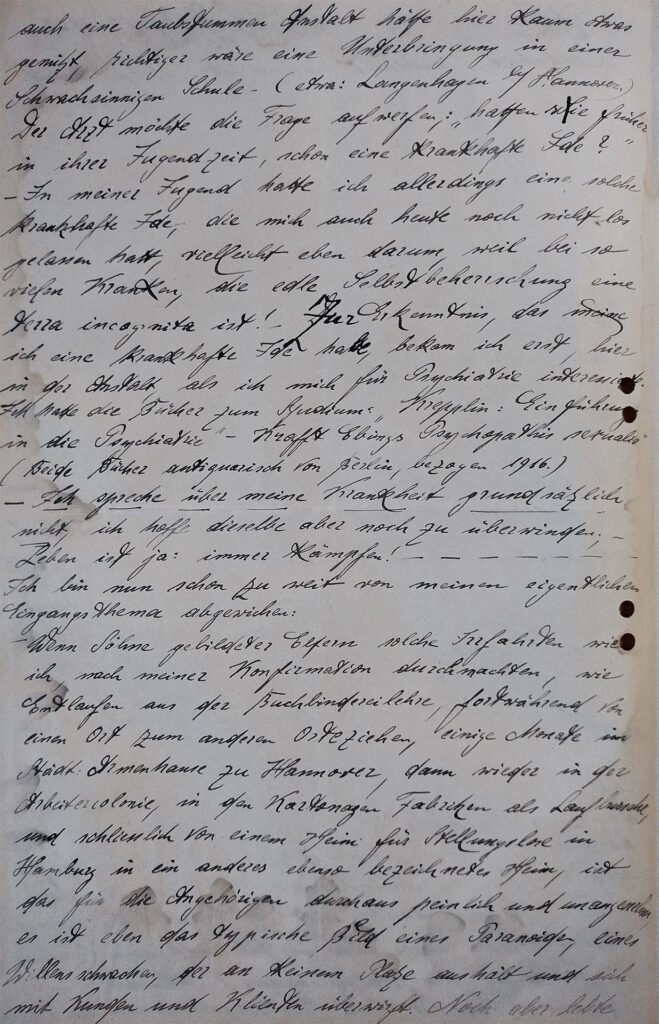 auch eine Taubstummen Anstalt hätte hier kaum etwas
genützt, richtiger wäre eine Unterbringung in einer
Schwachsinnigen Schule - (etwa: Langenhagen b/ Hannover.)
Der Arzt möchte die Frage aufwerfen,: „hatten Sie früher
in ihrer Jugendzeit, schon eine krankhafte Ide?"
- In meiner Jugend hatte ich allerdings eine solche
krankhafte Ide, die mich auch heute noch nicht los
gelassen hatt, vielleicht eben darum, weil bei so
vielen Kranken, die edle Selbstbeherrschung eine
terra incognita ist! - Zur Erkenntnis, das
ich eine krankhafte Ide habe, bekam ich erst, hier
in der Anstalt als ich mich für Psychiatrie interessirte.
Ich hatte die Bücher zum Studium: „Krepplin: Einführung
in die Psychiatrie" - Krafft Ebings Psychopathis sexualis"
(Beide Bücher antiquarisch von Berlin, bezogen 1916.)
- Ich spreche über meine Krankheit grundsätzlich
nicht, ich hoffe dieselbe aber noch zu überwinden, -
Leben ist ja: immer Kämpfen! - - - - - -
Ich bin nun schon zu weit von meinen eigentlichen
Eingangsthema abgewichen:
Wenn Söhne gebildeter Eltern solche Irrfahrten wie
ich, nach meiner Konfirmation durchmachten, wie
Entlaufen aus der Buchbindereilehre, fortwährend von
einen Ort zum anderen Orte ziehen, einige Monate im
Städt: Armenhause zu Hannover, dann wieder in der
Arbeitercolonie, in den Kartonagen Fabriken als Laufbursche,
und schliesslich von einem Heim für Stellungslose in
Hamburg in ein anderes ebenso bezeichnetes Heim, ist
das für die Angehörigen durchaus peinlich und unangenehm
es ist eben das typische Bild eines Paranoiden, eines
Willensschwachen, der an keinem Platze aushält und sich
mit Kunden und Klienten überwirft. Noch aber lebte